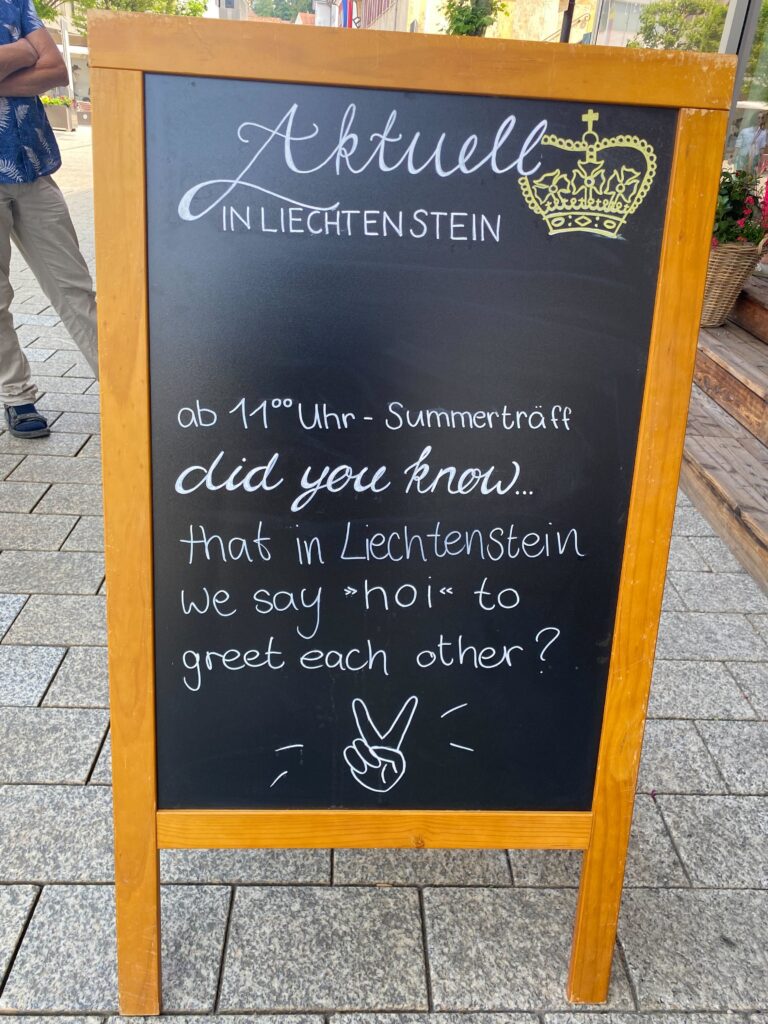 Aktuell
IN LIECHTENSTEIN
ab 11⁰⁰ Uhr - Summerträff
did you know...
that in Liechtenstein
we say »hoi« to
greet each other?